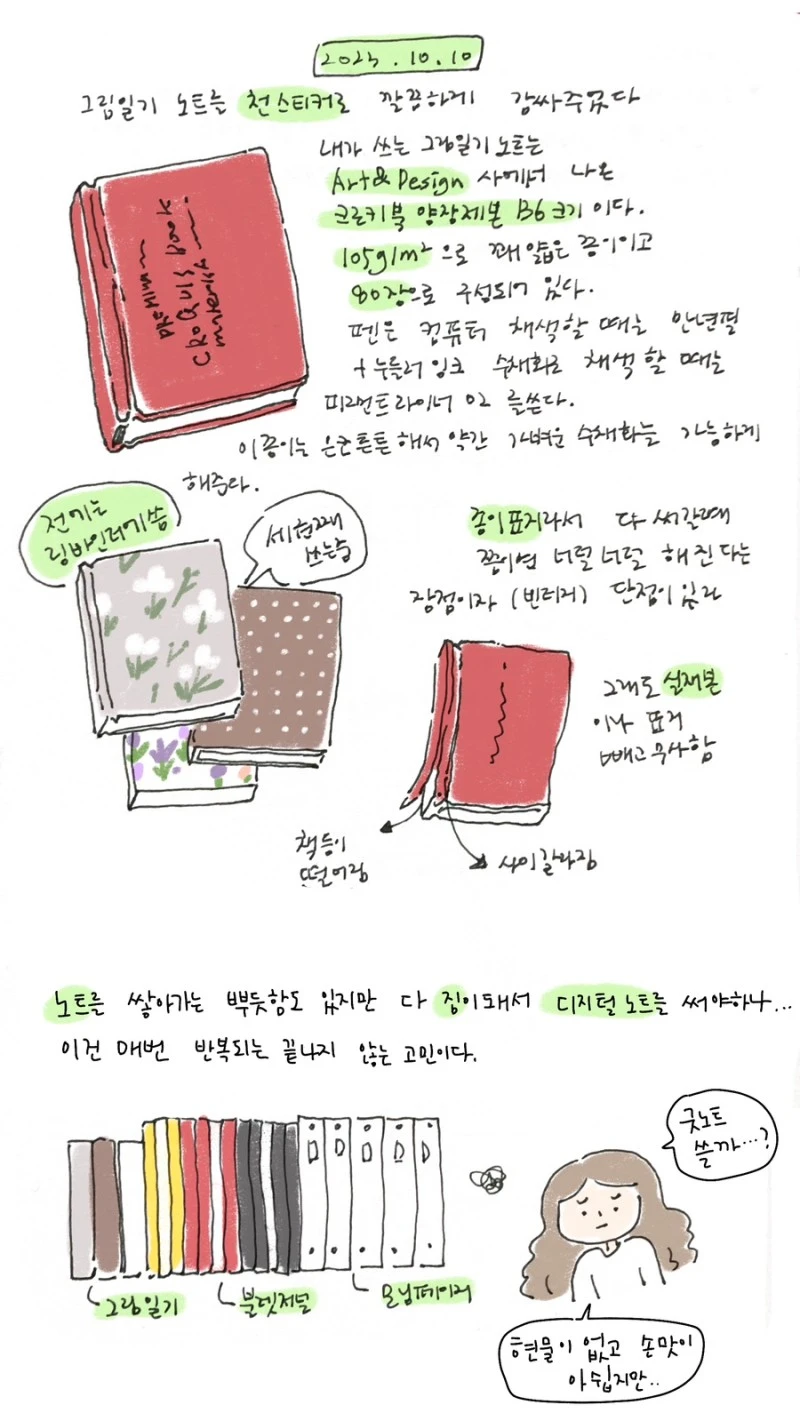 2023.10.10
그림일기 노트를 천 스티커로 깔끔하게 감싸주었다
내가 쓰는 그림일기 노트는
Art&Design 사에서 나온
크로키북 양장제본 B6 크기 이다.
105g/m² 으로 꽤 얇은 종이이고
80장으로 구성되어 있다.
펜은 컴퓨터 채색할 때는 만년필
+ 누들러 잉크 수채화로 채색 할 때는
피그먼트라이너 02 를쓴다.
이종이는 은근튼튼해서 약간 가벼운 수채화는 가능하게
해준다.
PREMIUM
CROQUIS BOOK
전에는
링바인더에씀
세번째
쓰는중
종이표지라서 다 써갈때
쯤이면 너덜너덜 해진다는
장점이자 (빈티지) 단점이 있다
그래도 실제본
이나 표지
빼고 무사함
책등이
떨어짐
사이갈라짐
노트를 쌓아가는 뿌듯함도 있지만 다 짐이돼서 디지털노트를 써야하나...
이건 매번 반복되는 끝나지 않는 고민이다.
굿노트
쓸까...?
그림일기
불렛저널
모닝페이지
현물이 없고 손맛이
아쉽지만..